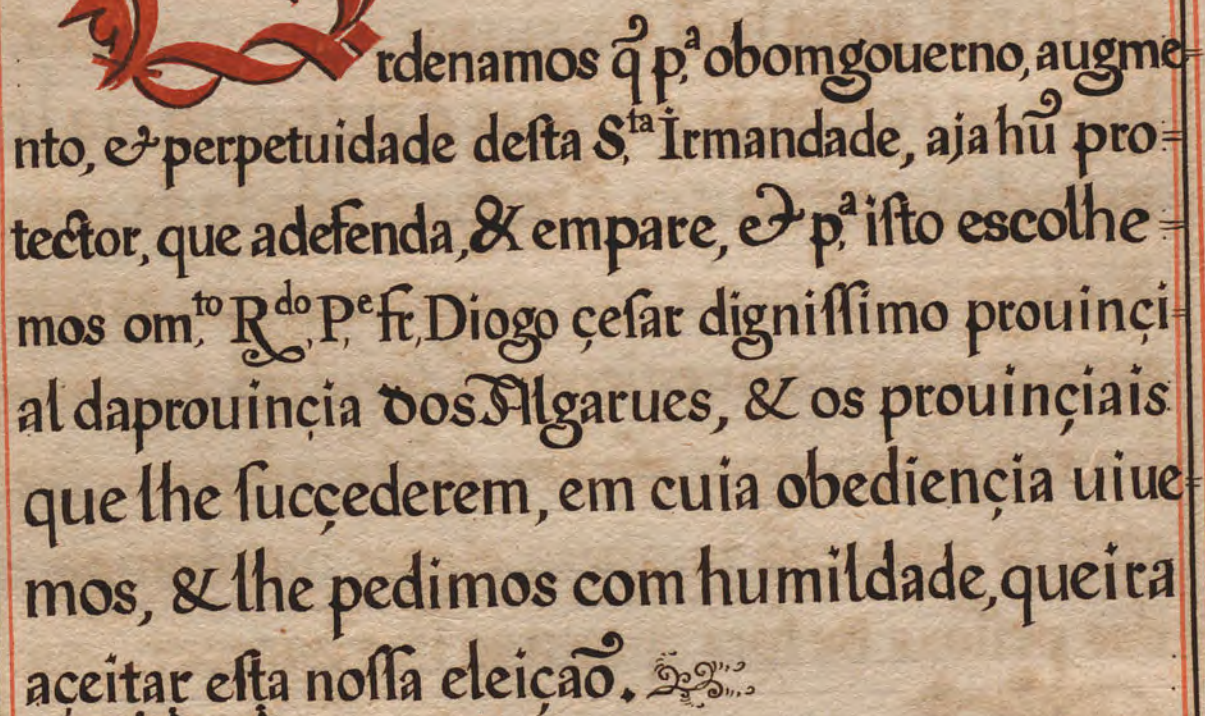 Ordenamos q̃ p.ª obomgouerno, augme-
nto, & perpetuidade deſta S.ta Irmandade, aja hũ pro=
tector, que adefenda, & empare, & p.ª iſto escolhe=
mos om.to R.do P.e fr. Diogo çeſar digniſſimo prouinçi-
al daprouinçia dos Algarues, & os prouinçiais
que lhe ſucçederem, em cuia obediençia uiue=
mos, & lhe pedimos com humildade, queira
açeitar eſta noſſa eleiçaõ.